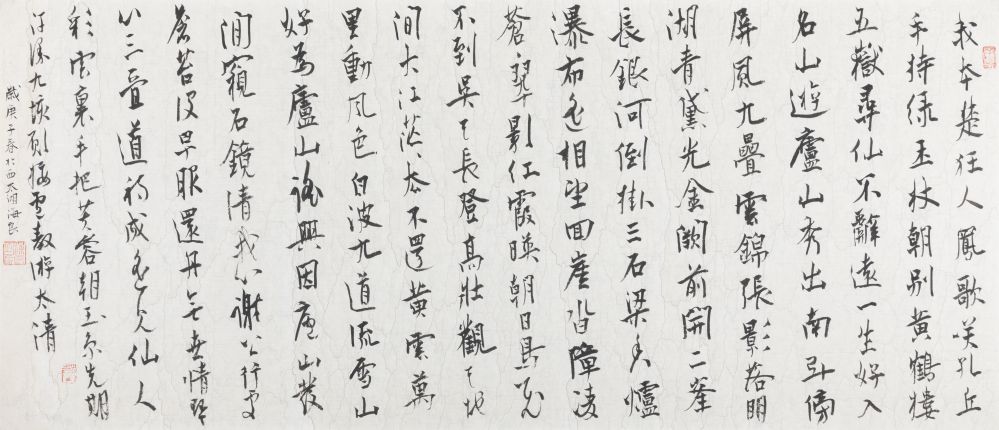 我本楚狂人鳳歌笑孔丘
手持绿玉杖朝别黄鶴樓
五嶽尋仙不辭遠一生好入
名山遊廬山秀出南斗傍
屏風九疊雲錦張影落明
湖青黛光金闕前開二峯
長銀河倒掛三石梁香爐
瀑布遥相望回崖沓障凌
蒼翠影红霞映朝日鳥飛
不到吴天長登高壯觀天地
間大江茫茫去不還黄雲萬
里動風色白波九道流雪山
好為廬山謠興因廬山發
閒窺石鏡清我心謝公行處
蒼苔没早服還丹無世情琴
心三疊道初成遥見仙人
彩雲裏手把芙蓉朝玉京先期
汗漫九垓願接盧敖游太清
歲庚子春於西太湖海